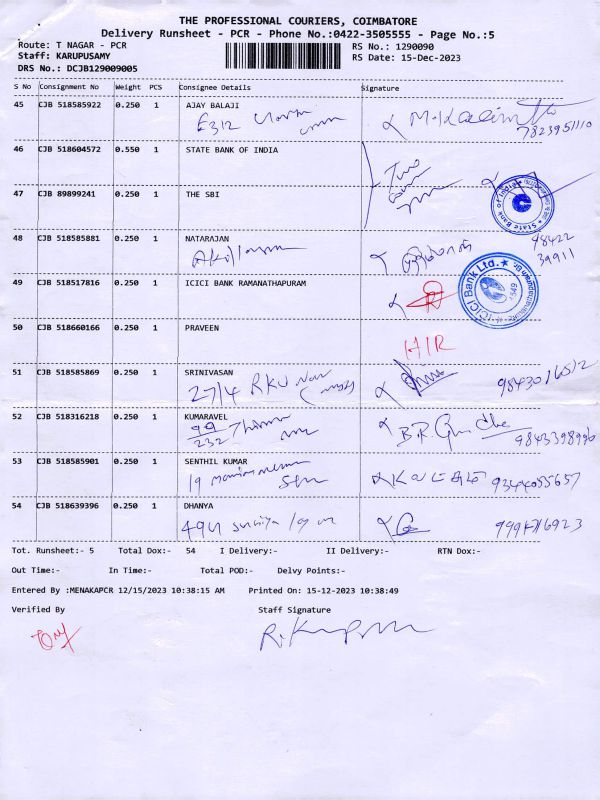 THE PROFESSIONAL COURIERS, COIMBATORE
Delivery Runsheet - PCR - Phone No.:0422-3505555 - Page No.:5
Route: T NAGAR - PCR
RS No.: 1290090
Staff: KARUPUSAMY
RS Date: 15-Dec-2023
DRS No.: DCJB129009005
S No Consignment No Weight PCS Consignee Details Signature
45 CJB 518585922 0.250 1 AJAY BALAJI
E312
7823951110
46 CJB 518604572 0.550 1 STATE BANK OF INDIA
Two
State Bank of India
47 CJB 89899241 0.250 1 THE SBI
48 CJB 518585881 0.250 1 NATARAJAN
98422
39911
49 CJB 518517816 0.250 1 ICICI BANK RAMANATHAPURAM
ICICI Bank Ltd.
50 CJB 518660166 0.250 1 PRAVEEN
H/R
51 CJB 518585869 0.250 1 SRINIVASAN
27/4 RKV
9843016512
52 CJB 518316218 0.250 1 KUMARAVEL
99/232
9843398996
53 CJB 518585901 0.250 1 SENTHIL KUMAR
19
9344055657
54 CJB 518639396 0.250 1 DHANYA
49U
Tot. Runsheet:- 5 Total Dox:- 54 I Delivery:- II Delivery:- RTN Dox:-
Out Time:- In Time:- Total POD:- Delvy Points:-
Entered By :MENAKAPCR 12/15/2023 10:38:15 AM Printed On: 15-12-2023 10:38:49
Verified By Staff Signature